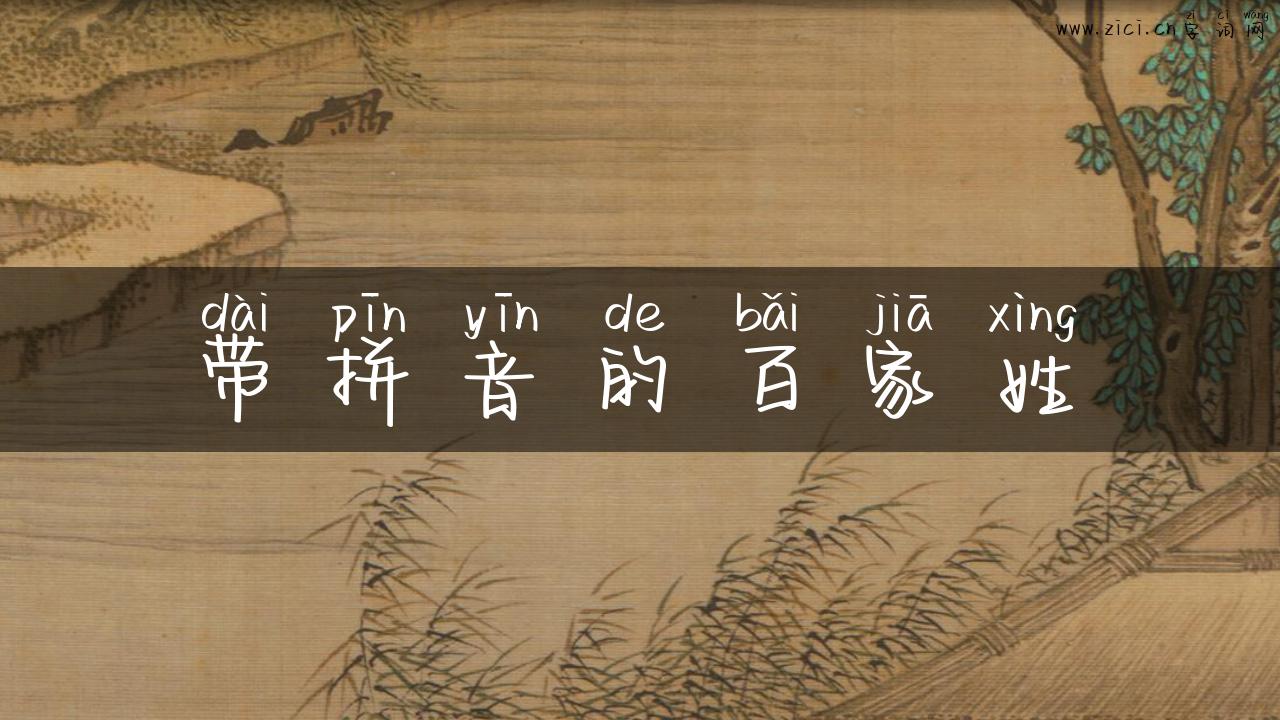 zì cí wǎng
www.zici.cn 字 词 网
dài pīn yīn de bǎi jiā xìng
带 拼 音 的 百 家 姓